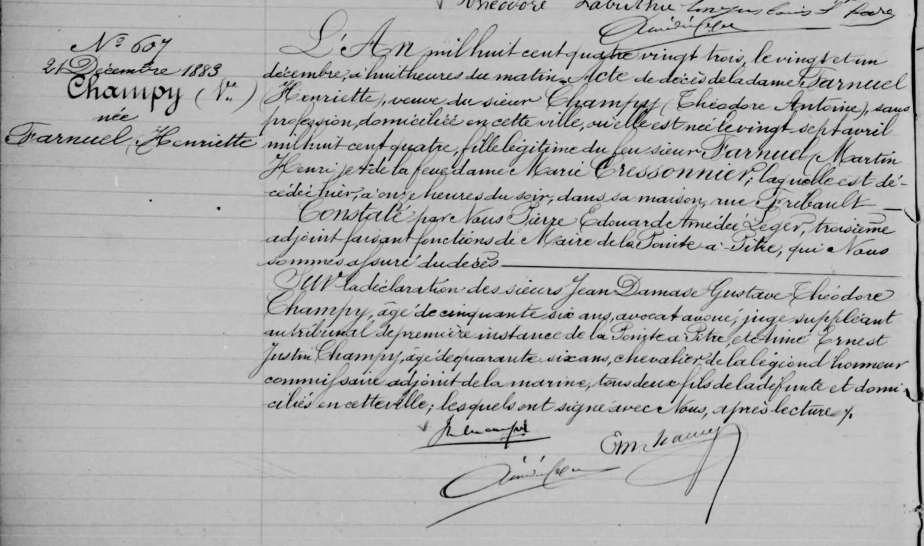 Théodore
Amédée Léger
N° 607
21 Décembre 1883
Champy (Ve)
née
Farnuel, Henriette
L'An mil huit cent quatre vingt trois, le vingt et un
décembre, à huit heures du matin. Acte de décès de la dame Farnuel
(Henriette), veuve du sieur Champy (Théodore Antoine), sans
profession, domiciliée en cette ville, où elle est née le vingt sept avril
mil huit cent quatre, fille légitime du feu sieur Farnuel, Martin
Henri, et de la feue dame Marie Cressonnier; laquelle est dé-
cédée hier, à onze heures du soir, dans sa maison, rue Frébault
Constaté par Nous Pierre Edouard Amédée Léger, troisième
adjoint faisant fonctions de Maire de la Pointe à Pitre, qui Nous
sommes assuré du décès
Sur la déclaration des sieurs Jean Damase Gustave Théodore
Champy, âgé de cinquante six ans, avocat avoué, juge suppléant
au tribunal de première instance de la Pointe à Pitre, et Ernest
Justin Champy, âgé de quarante six ans, chevalier de la légion d'honneur
commissaire adjoint de la marine, tous deux fils de la défunte et domi-
ciliés en cette ville; lesquels ont signé avec Nous, après lecture
Em Champy
Amédée Léger